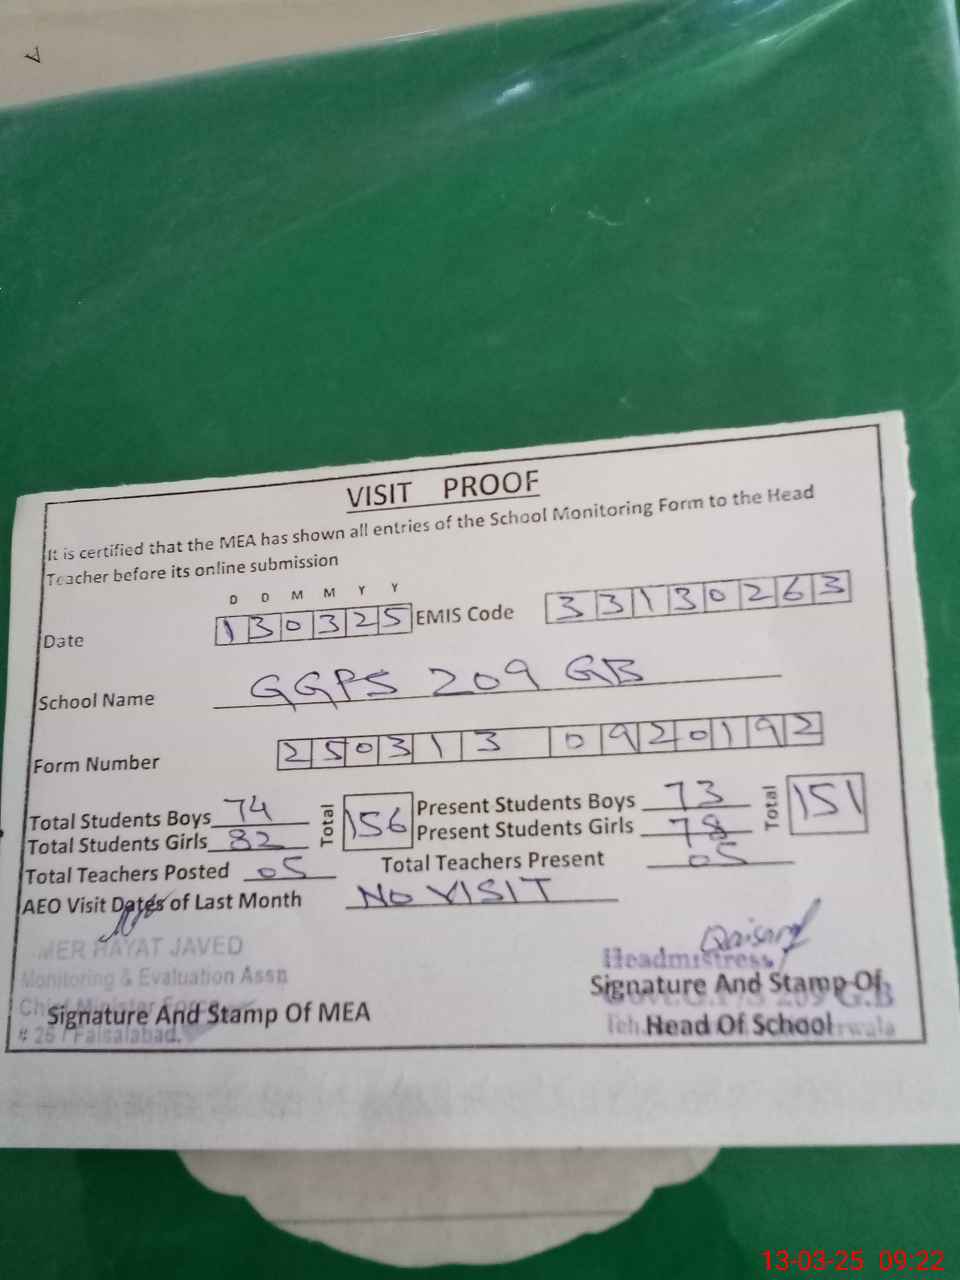 VISIT PROOF
It is certified that the MEA has shown all entries of the School Monitoring Form to the Head
Teacher before its online submission
D D M M Y Y
Date 130325 EMIS Code 33130263
School Name GGPS 209 GB
Form Number 250313 0920192
Total Students Boys 74 Total 156 Present Students Boys 73 Total 151
Total Students Girls 82 Present Students Girls 78
Total Teachers Posted 05 Total Teachers Present 05
AEO Visit Dates of Last Month NO VISIT
MER HAYAT JAVED
Monitoring & Evaluation Asstt
Chief Minister Force
Faisalabad.
Signature And Stamp Of MEA
Qaisara
Headmistress
Signature And Stamp Of
209 G.B
Head Of School
Teh.
13-03-25 09:22